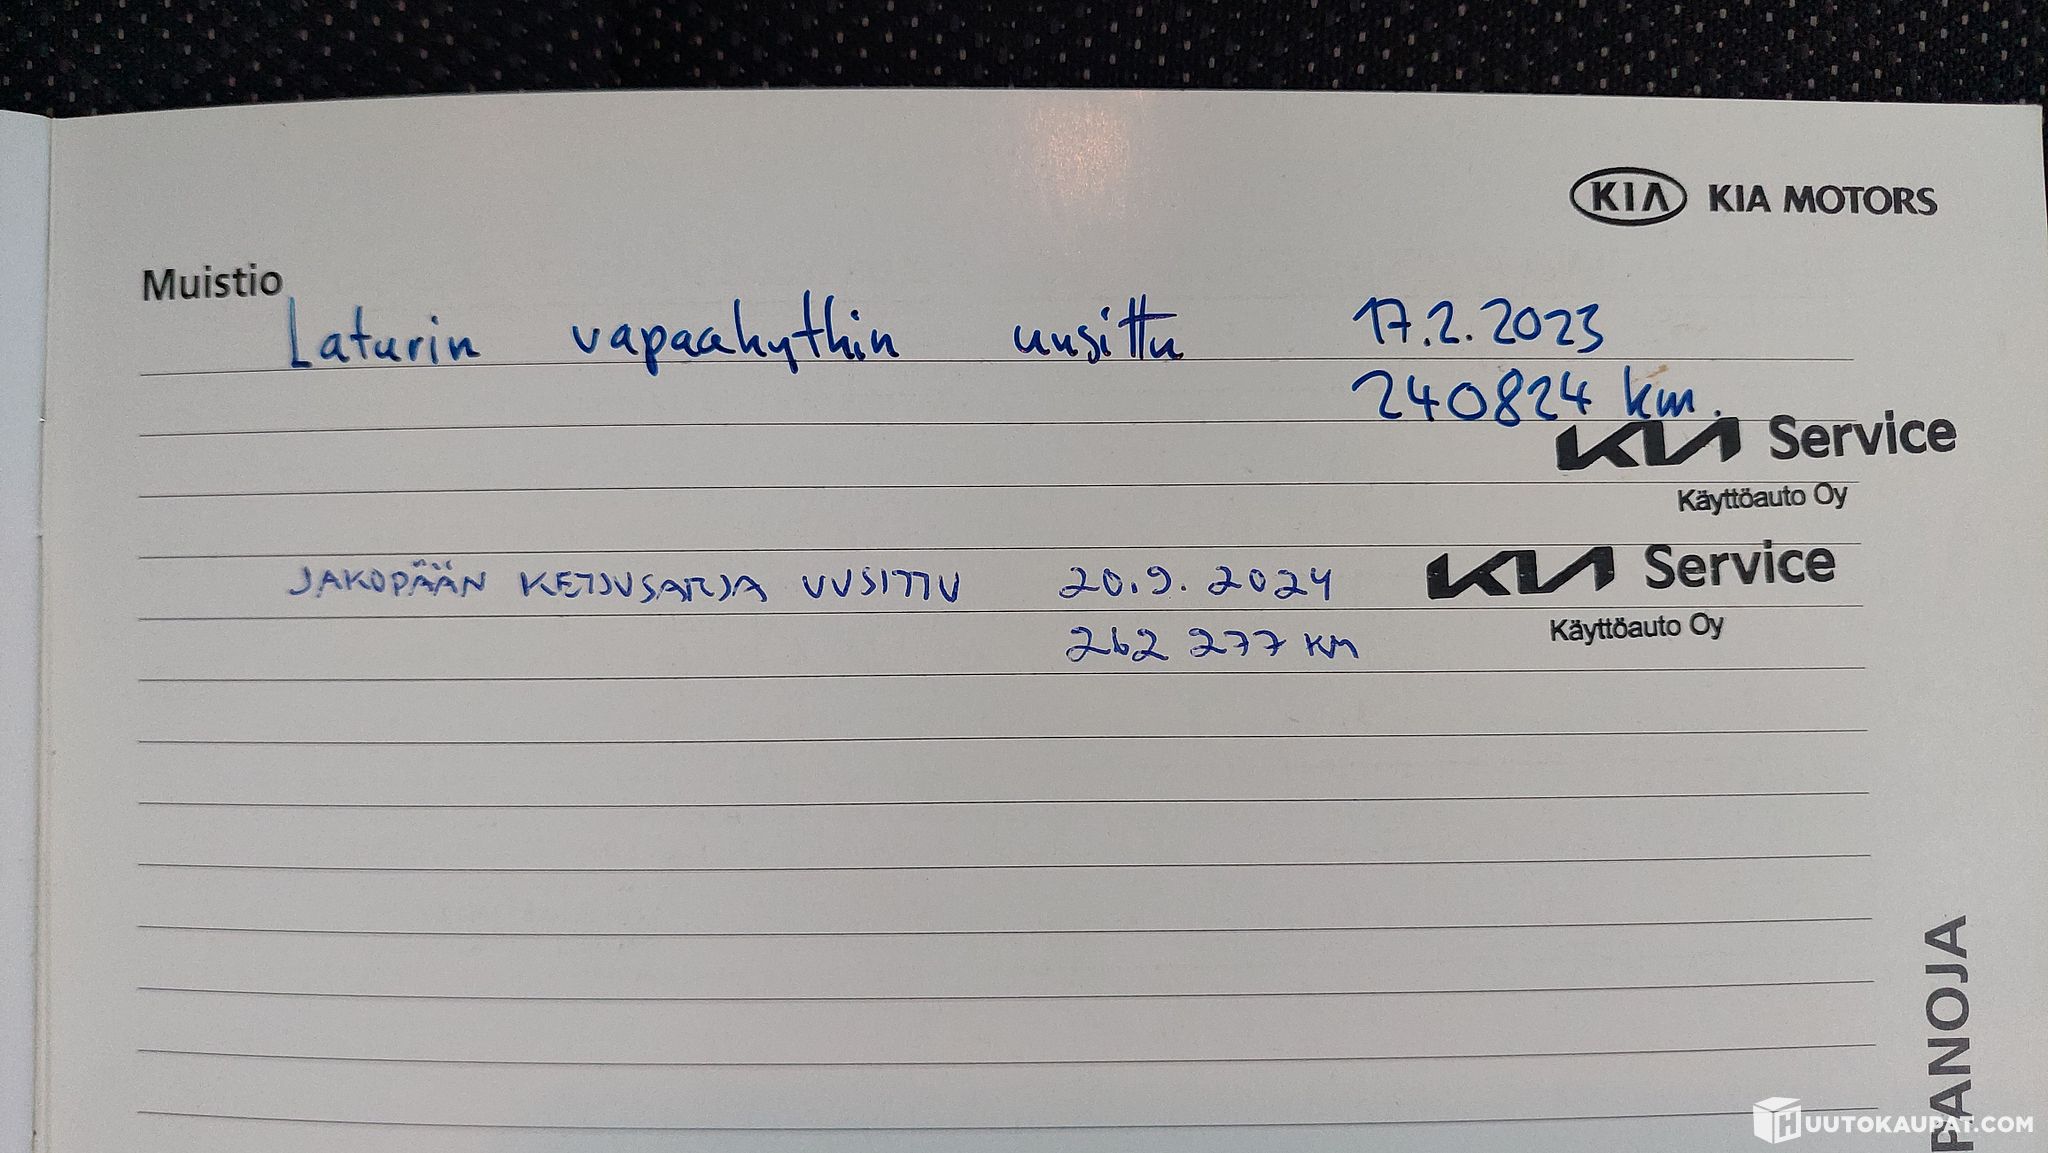 KIA KIA MOTORS
Muistio
Laturin vapaakytkin uusittu 17.2.2023
240824 km.
KIA Service
Käyttöauto Oy
JAKOPÄÄN KETJUSARJA UUSITTU 20.9.2024 KIA Service
262 277 KM Käyttöauto Oy
PANOJA
HUUTOKAUPAT.COM